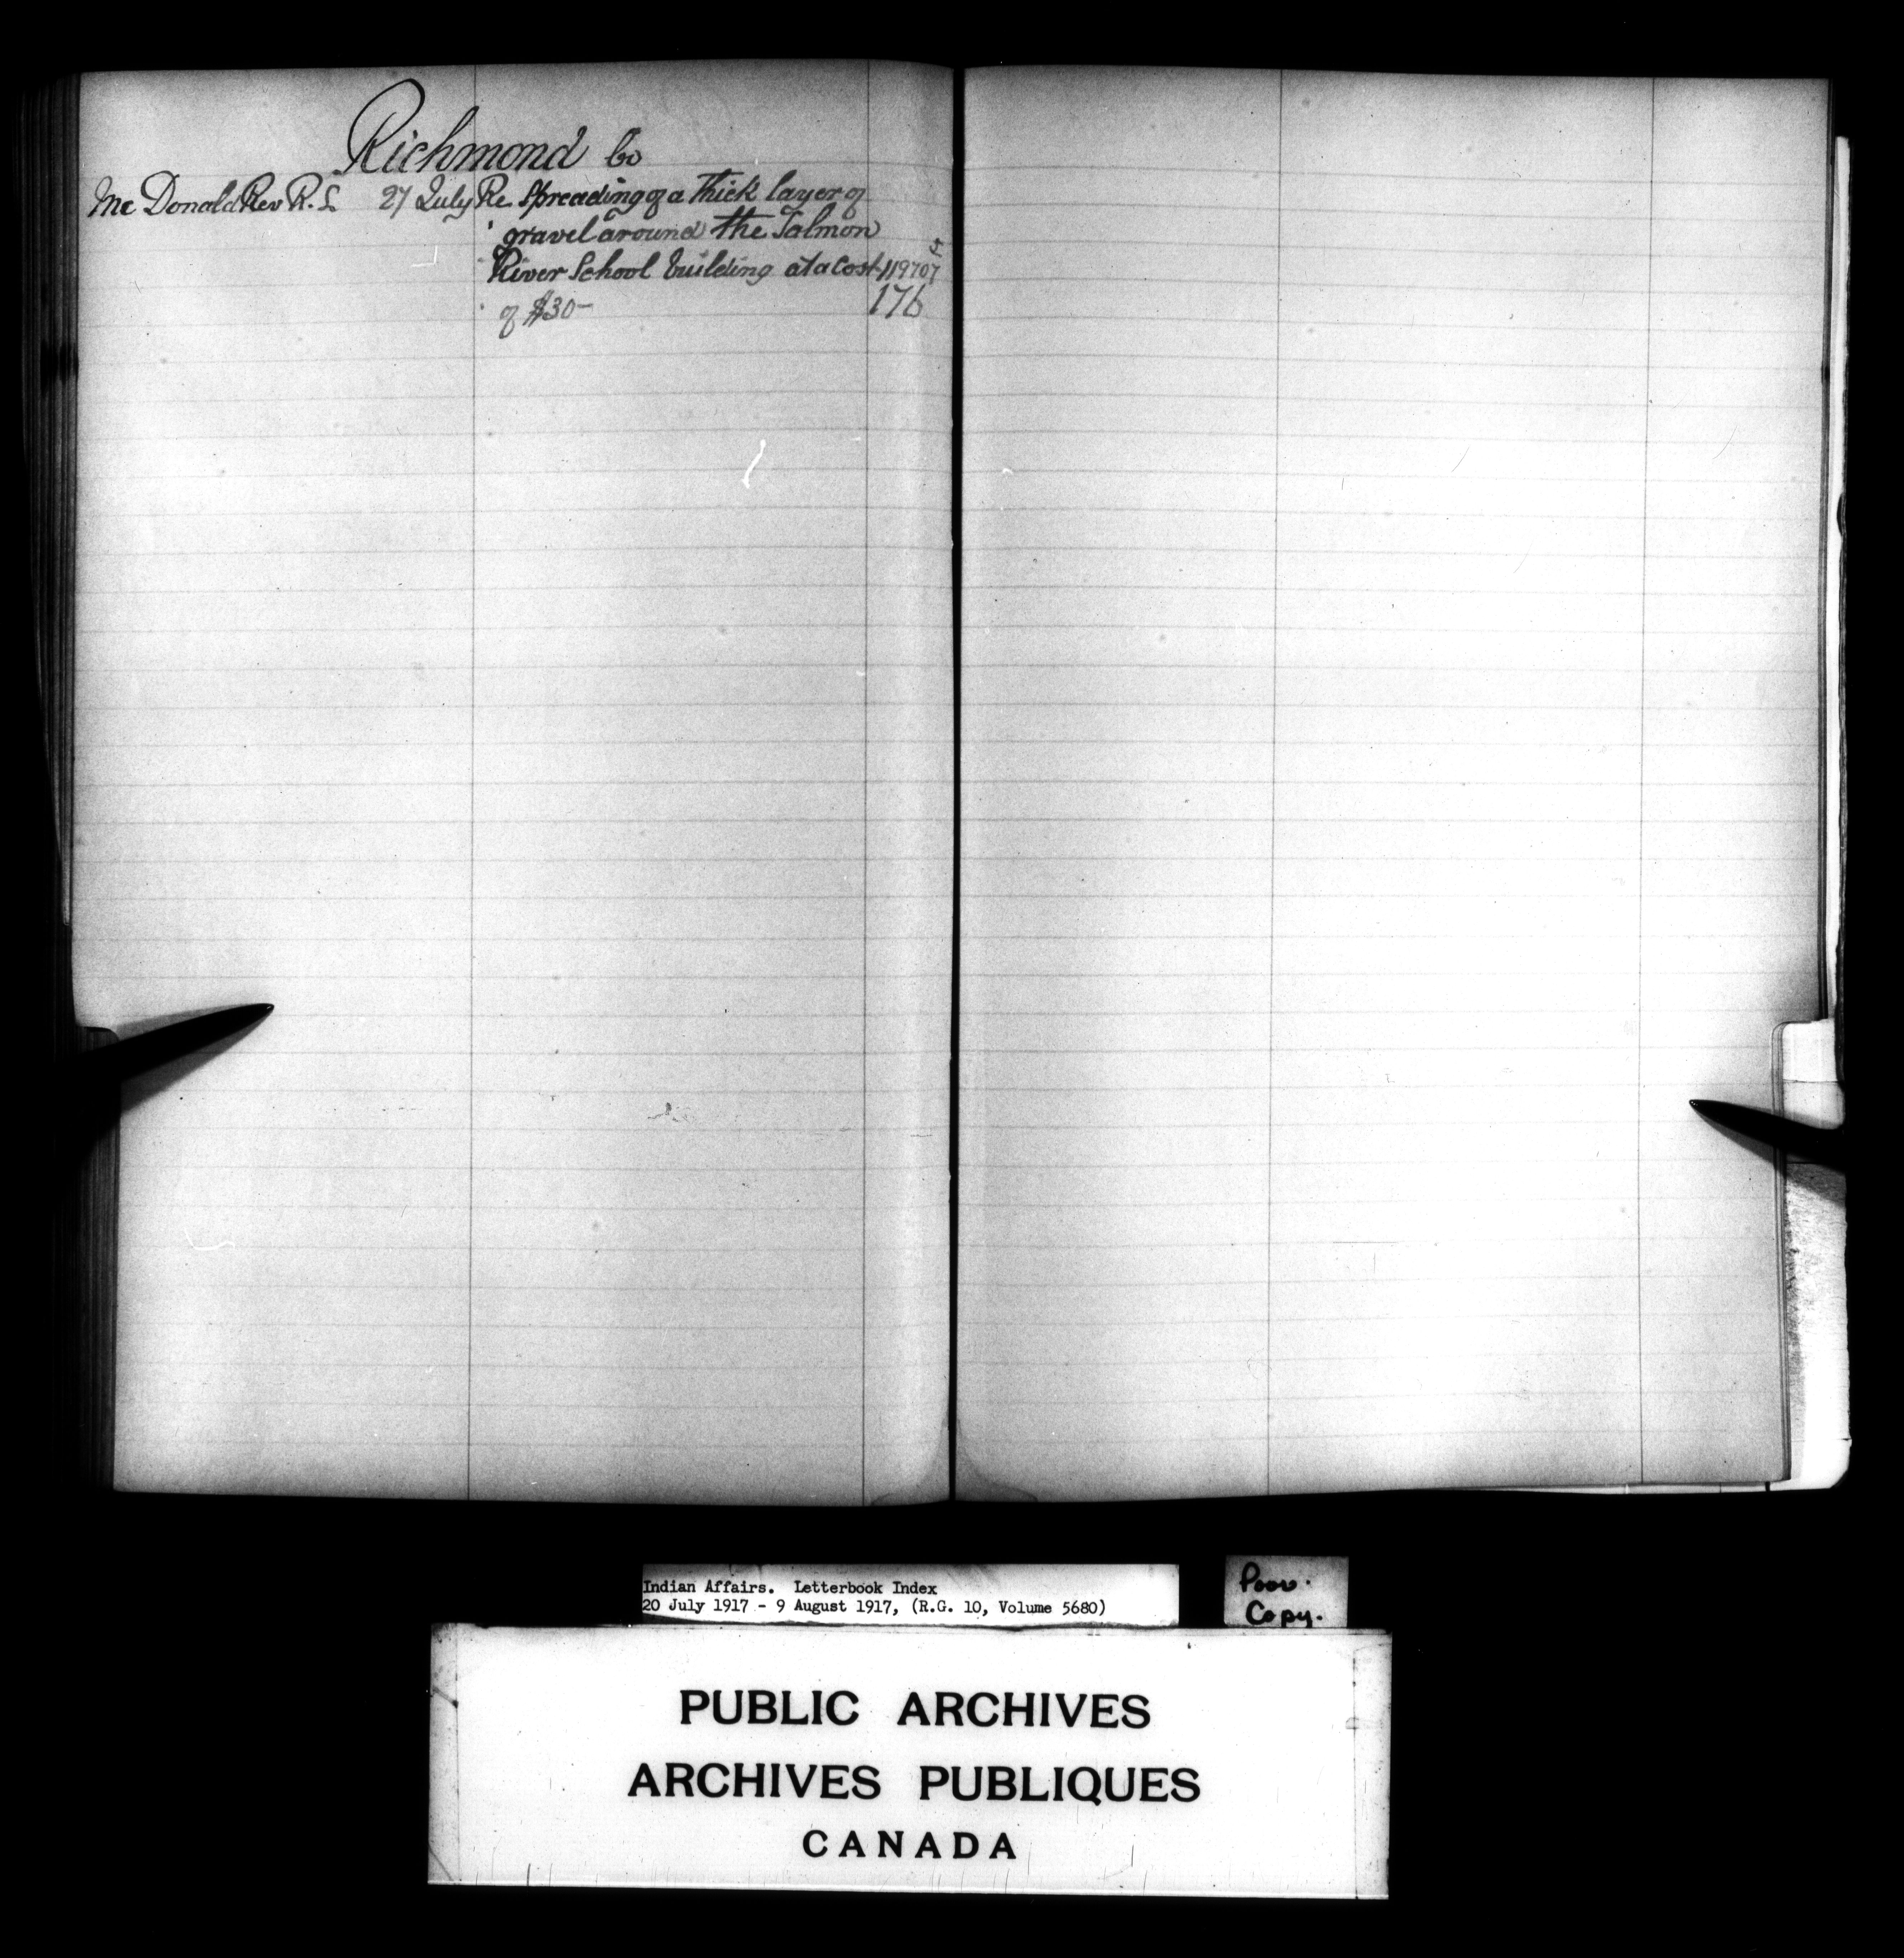 Richmond Co
Mc Donald Rev R. L 27 July Re Spreading of a Thick layer of
gravel around the Salmon
River School building at a Cost 119707 5
of $30- 176
Indian Affairs. Letterbook Index
20 July 1917 - 9 August 1917, (R.G. 10, Volume 5680)
Poor.
Copy.
PUBLIC ARCHIVES
ARCHIVES PUBLIQUES
CANADA